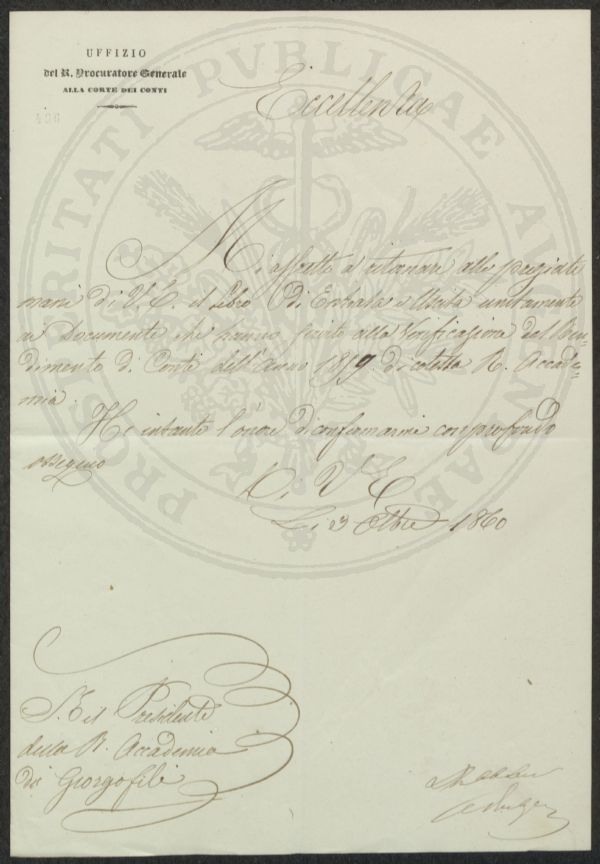 UFFIZIO
del R. Procuratore Generale
ALLA CORTE DEI CONTI
436
Eccellenza
PROSPERITATI PVBLICAE AVGENDAE
Mi affretto a ritornare alle pregiate
mani di V. E. il Libro di Entrata e Uscita unitamente
ai Documenti che hanno servito alla verificazione del Ren-
dimento di Conti dell'Anno 1859. di cotesta R. Accade-
mia.
Ho intanto l'onore di confermarmi con profondo
ossequio
Di V E
Li 3 Ottbre 1860
S. E il Presidente
della R. Accademia
dei Giorgofili